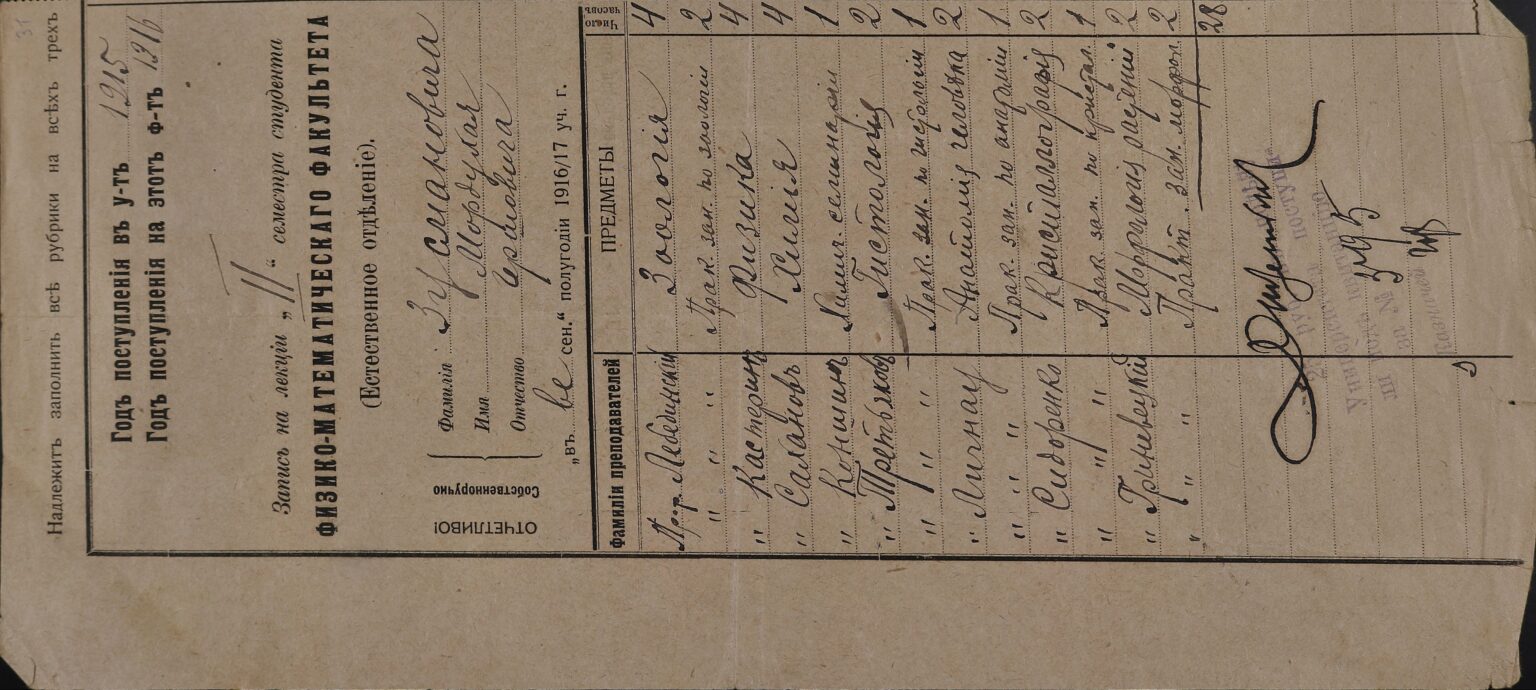 Надлежитъ заполнить всѣ рубрики на всѣхъ трехъ
Годъ поступленія въ у-тъ 1915
Годъ поступленія на этотъ ф-тъ 1916
Запись на лекціи „II“ семестра студента
ФИЗИКО-МАТЕМАТИЧЕСКАГО ФАКУЛЬТЕТА
(Естественное отдѣленіе).
ОТЧЕТЛИВО!
Собственноручно
Фамилія Зусмановича
Имя Мордухая
Отчество
„въ ве сен.“ полугодіи 1916/17 уч. г.
Фамиліи преподавателей ПРЕДМЕТЫ Число часовъ
Проф. Лебединскій Зоологія 4
" " Прак. зан. по зоологіи 2
" Кастеринъ Физика 4
" Салановъ Химія 4
" Конишинъ Химич. семинарій 1
" Третьяковъ Гистологія 2
" " Прак. зан. по гистологіи 1
" Личнац Анатомія человѣка 2
" " Прак. зан. по анатоміи 1
" Сидоренко Кристаллографія 2
" " Прак. зан. по кристал. 1
" Гриневецкій Морфологія растеній 2
" " Практ. зан. морфол. 2
28